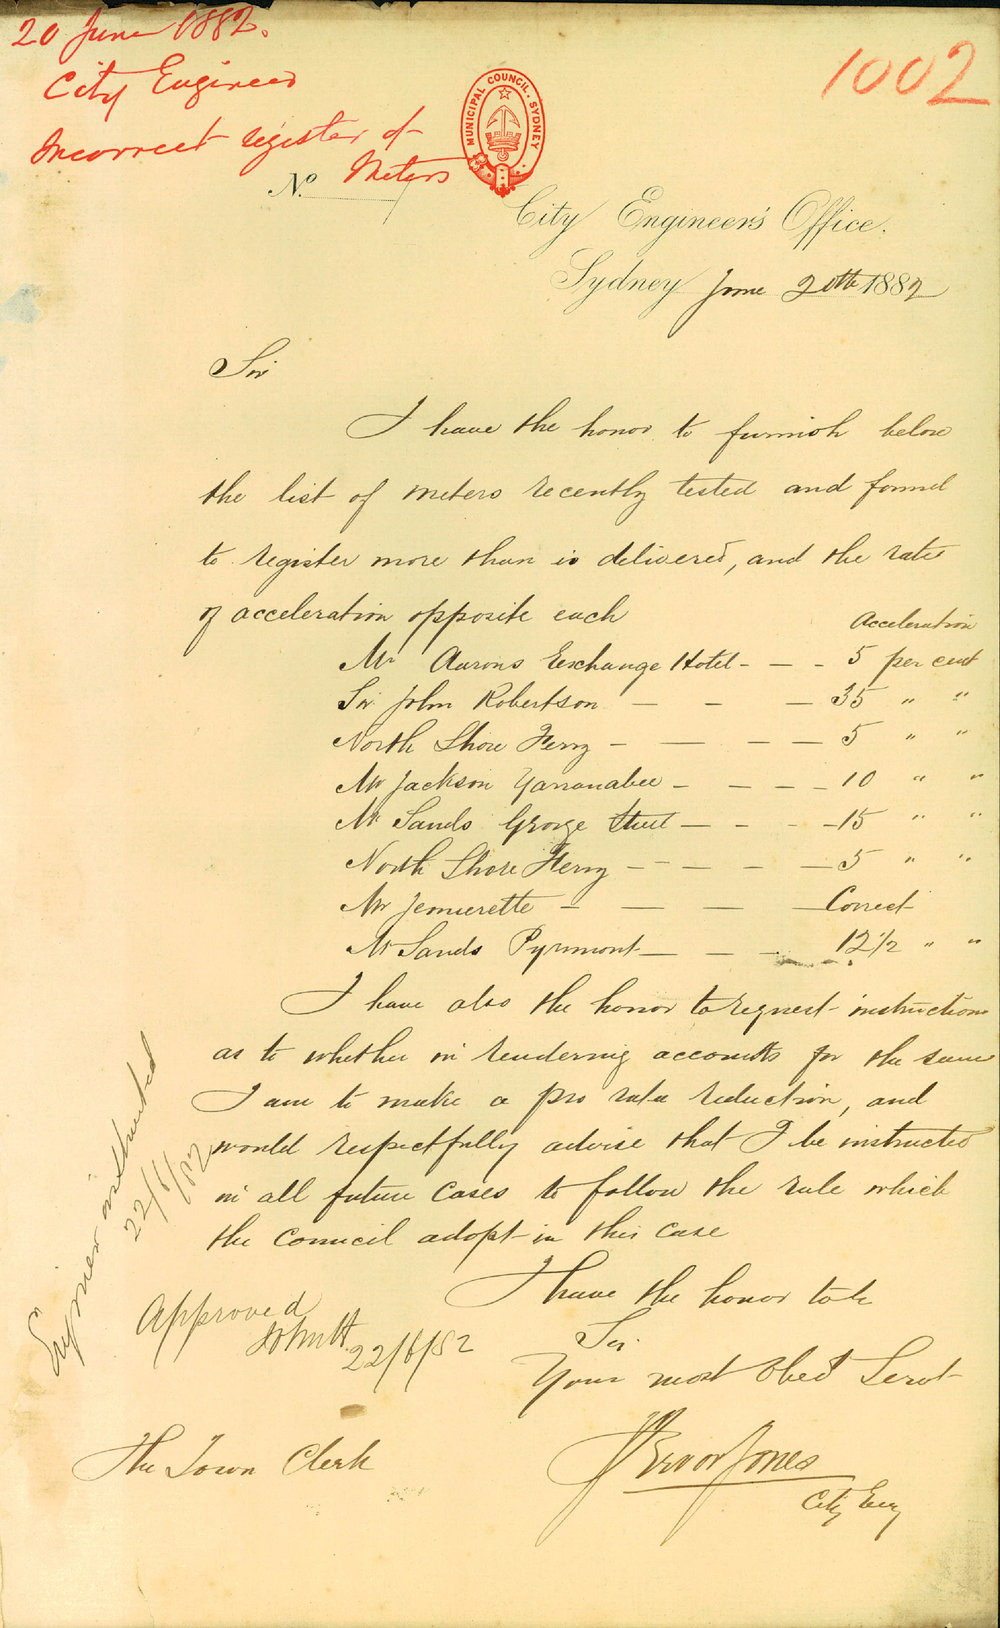 20 June 1882.
City Engineer
Incorrect register of
Meters
1002
MUNICIPAL COUNCIL. SYDNEY
No.
City Engineer's Office.
Sydney June 20th 1882
Sir
I have the honor to furnish below
the list of meters recently tested and found
to register more than is delivered, and the rate
of acceleration opposite each
Acceleration
Mr Aarons Exchange Hotel - - - 5 per cent
Sir John Robertson - - - 35 " "
North Shore Ferry - - - - 5 " "
Mr Jackson Yarranabee - - - - 10 " "
Mr Sands George Street - - - - 15 " "
North Shore Ferry - - - - - 5 " "
Mr - - - - Correct
Mr Sands Pyrmont - - - 12 1/2 " "
I have also the honor to request instructions
as to whether in rendering accounts for the same
I am to make a pro rata reduction, and
would respectfully advise that I be instructed
in all future cases to follow the rule which
the Council adopt in this case
I have the honor to be
Sir
Your most Obed Servt
Jones
City Eng
The Town Clerk
Approved
22/6/82
Engineer instructed
22/6/82